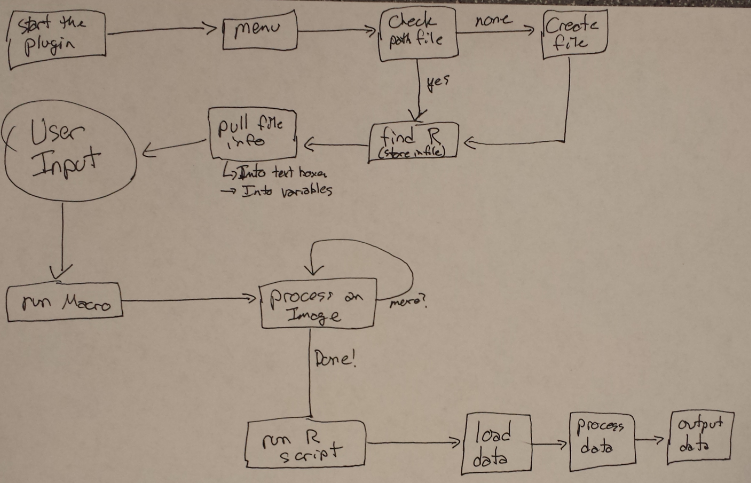 start the
plugin
menu
Check
path file
none
Create
file
yes
User
Input
pull file
info
find R
(store in file)
Into text boxes
Into variables
run Macro
process an
Image
more?
Done!
run R
script
load
data
process
data
output
data